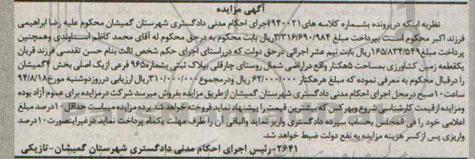 آگهی مزایده
نظریه اینکه درپرونده بشماره کلاسه های ۹۴۰۰۲۱اجرای احکام مدنی دادگستری شهرستان گمیشان محکوم علیه رضا ابراهیمی
فرزند اکبر محکوم است بپرداخت مبلغ ۲/۳۱۶/۶۹۰/۹۸۴ریال بابت محکوم به درحق محکوم له آقای محمد کاظم اسداوندی وهمچنین
پرداخت مبلغ ۱۶۵/۸۳۴/۵۴۹ریال بابت نیم عشر اجرائی درحق دولت که درراستای اجرای حکم شخص ثالث بنام حسن تقدسی فرزند قربان
یکقطعه زمین کشاورزی بمساحت ۵هکتار واقع دراراضی شمال روستای چارقلی بپلاک ثبتی بشماره ۹۶۵ فرعی ازیک اصلی بخش ۴گمیشان
را درقبال محکوم به معرفی نموده که مبلغ هرهکتار ۶۲/۰۰۰/۰۰۰ ریال ودرمجموع ۳۱۰/۰۰۰/۰۰۰ریال ارزیابی درروزدوشنبه مورخ ۹۴/۸/۱۸
ساعت ۱۰صبح درمحل اجرای احکام مدنی دادگستری شهرستان گمیشان ازطریق مزایده بفروش میرسد شرکت درمزایده برای عموم آزاد بوده
ومزایده ازقیمت کارشناسی شروع وبهرکس که بیشترین قیمت را پیشنهاد نماید فروخته خواهد شد. برنده مزایده میبایست حداقل ۱۰درصد مبلغ
اعلامی خود را فی المجلس بحساب سپرده دادگستری واریز نماید والباقی آن را ظرف مهلت یکماه پرداخت نماید درغیراینصورت ۱۰درصد
واریزی پس ازکسر هزینه مزایده به نفع دولت ضبط خواهد شد.
۲۶۴۱-رئیس اجرای احکام مدنی دادگستری شهرستان گمیشان-تازیکی